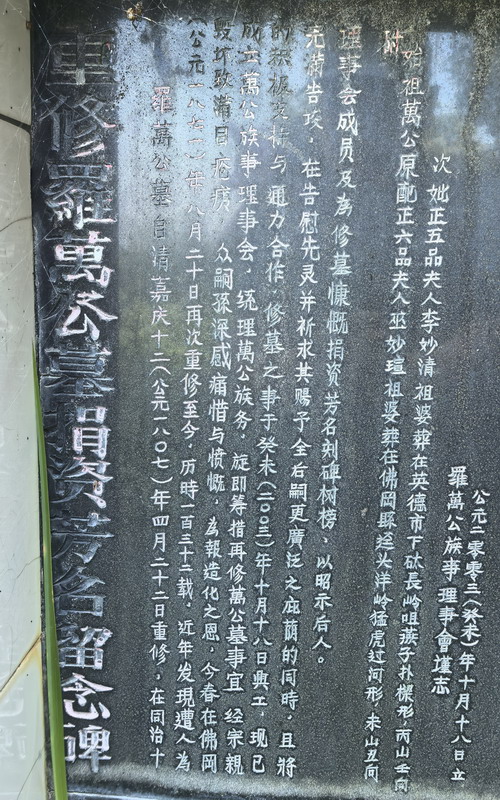 重修羅萬公墓捐资芳名留念碑
羅萬公墓自清嘉庆十二(公元一八〇七)年四月二十二日重修，在同治十
(公元一八七一)年八月二十日再次重修至今，历時一百三十二载，近年发現遭人為
毁坏致满目疮痍，众嗣孫深感痛惜与愤慨，為報造化之恩，今春在佛岡
成立萬公族事理事会，统理萬公族务，旋即筹措再修萬公墓事宜，经宗親
的积极支持与通力合作，修墓之事于癸未(二〇〇三)年十月十八日興工，现已
完满告竣，在告慰先灵并祈求其赐予全后嗣更廣泛之庇荫的同時，且將
理事会成员及為修墓慷慨捐资芳名刻碑树榜，以昭示后人。
附：始祖萬公原配正六品夫人巫妙瑄祖婆葬在佛岡縣迳头洋岭猛虎过河形，未山丑向
次妣正五品夫人李妙清祖婆葬在英德市下砍長岭咀燕子扑樑形，丙山壬向
羅萬公族事理事會谨志
公元二零零三(癸未)年十月十八日立